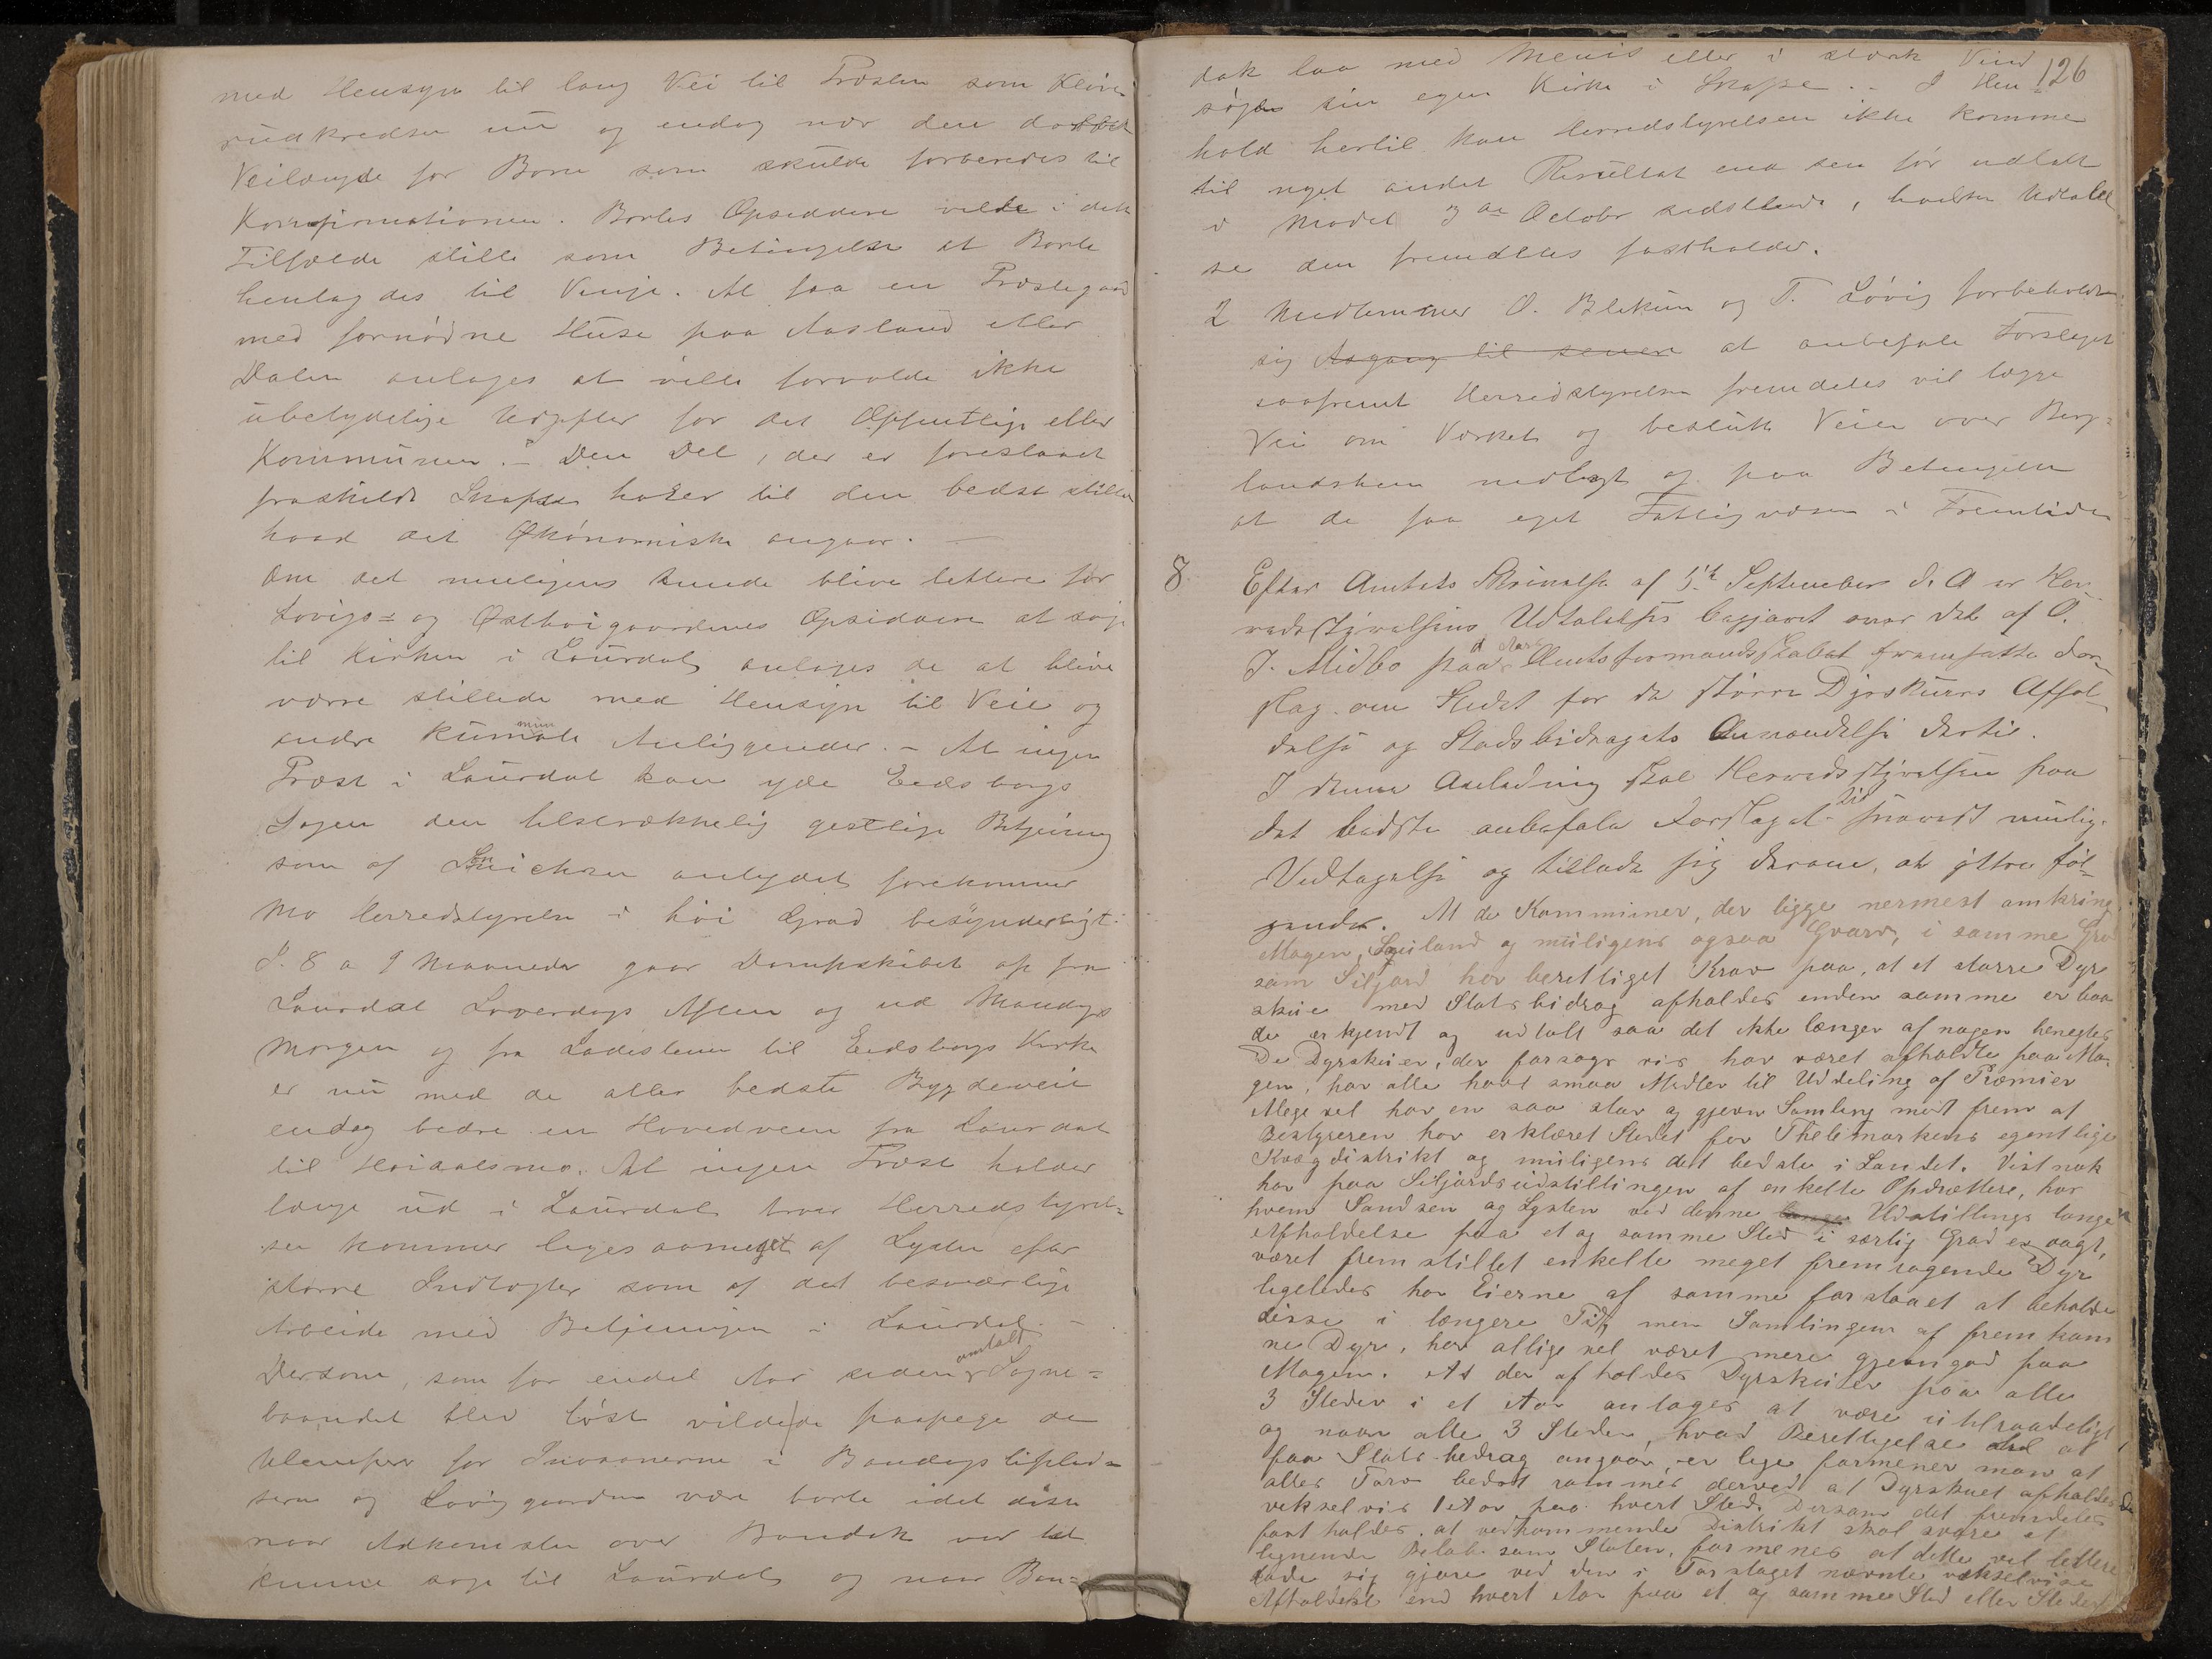 med Hensyn til lang Vei til Præsten som Klevi-
rudkredsen nu og endog nær den
Veilængde for Børn som skulde forberedes til
Konfirmationen. Bortes Opsiddere vilde i dette
Tilfælde stille som Betingelse at Borte
henlagdes til Vinje. At faa en Præstegaard
med fornødne Huse paa Aasland eller
Dalen antages at ville forvolde ikke
ubetydelige Udgifter for det Offentlige eller
Kommunen. – Den Del, der er foreslaaet
fraskildt Skafsaa hører til den bedst stillede
hvad det Økonomiske angaar. –
Om det muligens kunde blive lettere for
Lovigs- og Østhvigaardenes Opsiddere at søge
til Kirken i Laurdal antages de at blive
værre stillede med Hensyn til Veie og
andre kummunale Anliggender. – At ingen
Præst i Laurdal kan yde Eidsborgs
Sogn den tilstrækkelig gestlige Betjening
som af antydet forekommer
Mo Herredstyrelse i høi Grad besynderligt.
I 8 a 9 Maaneder gaar Dampskibet op fra
Laurdal Løverdags Aften og ud Mandags
Morgen og fra Ladestenen til Eidsborgs Kirke
er nu med de aller bedste Bygdeveie
endog bedre en Hovedveien fra Laurdal
til Høidalsmo. At ingen Præst holder
længe ud i Laurdal tror Herredstyrel=
sen kommer ligesaameget af Lysten efter
større Indtægter som af det besværlige
Arbeide med Betjeningen i Laurdal. –
Dersom, som for endel Aar siden omtalt Sogne=
baandet blev løst vilde de paapege de
Ulemper for Personerne i Bandagslisplad=
sene og Lovigaarden være borte idet disse
naar Adkomsten over Bandak var let
kunne søge til Laurdal og naar Ban=
126
dak laa med Menis eller i stærk Vind
søge sin egen Kirke i Skafse. – I Hen=
hold hertil kan Herredstyrelsen ikke komme
til noget andet Resultat end den før udtalt
i Mødet 3de October sidstleden, hvilken Udtalel
se den fremdeles fastholder.
2 Medlemmer O. Blekum og T. Løvig forbeholdt
sig Asgang til senere at anbefale Forslaget
saafremt Herredstyrelsen fremdeles vil lægge
Vei om Værket og beslutte Veien over Berg=
landsheia nedlagt og paa Betingelse
at de faa eget Fattigvæsen i Fremtiden
8 Efter Amtets Skrivelse af 5te September d. A er Her-
redsstyrelsens Udtalelse begjæret over det af O.
J. Midbø paa d Aars Amtsformandskabet fremsatte For-
slag om Stedet for de større Dyrskuers Affol-
delse og Stadsbidragets Anvendelse dertil.
I denne Anledning skal Herredsstyrelsen paa
det bedste anbefale Forslaget til snarest mulig.
Vedtagelse og tillade sig derom, at yttre føl-
gende. At de Kommuner, der ligge nermest omkring
Mogen, Sauland og muligens ogsaa Gvarv, i samme Grad
som Siljord har berettiget Krav paa, at et større Dyr
skue med Statsbidrag afholdes enden samme er baa
de erkjendt og udtalt saa det ikke længer af nogen henegtes
De Dyrskuer, der forsøgs vis har været afholdte paa Mo-
gen, har alle havt smaa Midler til Uddeling af Præmier
Alligevel har en saa stor og gjevn Samling mødt frem at
Bestyreren har erklæret Stedet for Thelemarkens egentlige
Kvægdistrikt og muligens det bedste i Landet. Vistnok
har paa Siljordsudstillingen af enkelte Opdrættere, hos
hvem Sandsen og Lysten ved denne Udstillings lange
Afholdelse paa et og samme Sted i særlig Grad er vagt,
været fremstillet enkelte meget fremragende Dyr
ligeledes har Eierne af samme forstaaet at beholde
disse i længere Tid, men Samlingen af fremkom
ne Dyr, har alligevel været mere gjevngod paa
Mogen. At der afholdes Dyrskuer paa alle
3 Steder i et Aar antages at være utilraadeligt,
og naar alle 3 Steder, hvad Berettigelse til at
faa Stats-bedrag angaar, er lige formener man at
alles Tarv bedst rammes derved at Dyrskuet afholdes
vekselvis 1 Aar paa hvert Sted. Dersom det fremdeles
fast holdes, at vedkommende Distrikt skal svare et
lignende Beløb som Staten, formenes at dette vil lettere
lade sig gjøre ved den i Forslaget nævnte vekselvise
Afholdelse end hvert Aar paa et og samme Sted eller Steder